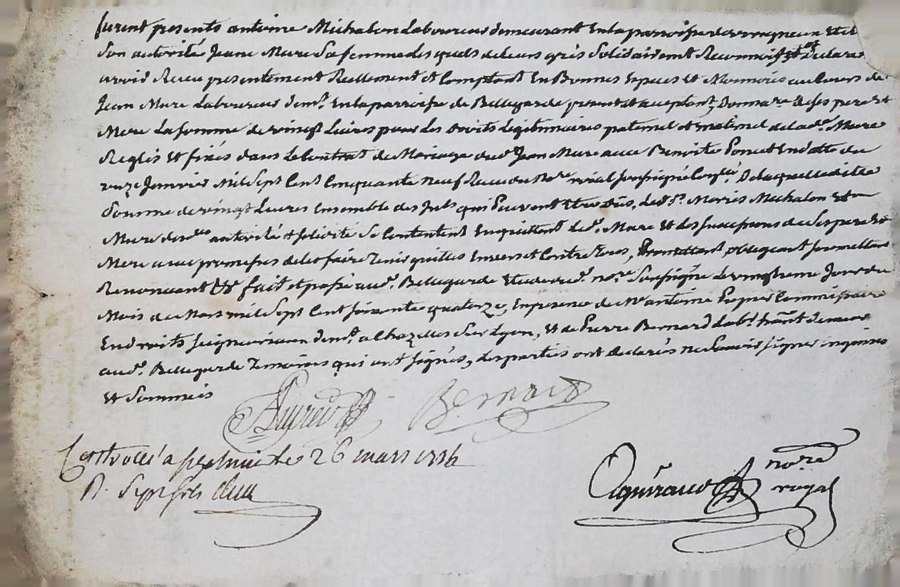 furent presents antoine Michalon Laboureur demeurant En la paroisse de
Son autorité Jeane Mure Sa femme des quels de leurs grés Solidairemt Reconnoissent declare
avoir Receu presentement Reellement Et Comptant En Bonnes Especes et Monnoies au Cours de
Jean Mure Laboureur demt. En la parroisse de Bellegarde present et aceptant, Donnataire de Ses pere Et
Mere La Somme de vingt Livres pour Les droits Legitimaires paternel et maternel de lad. Mure
Reglés et fixés dans Le Contrat de Mariage dud. Jean Mure avec Benoite Poncet En datte du
onze Janvier Mil Sept Cent Cinquante Neuf Receu du Nore. royal soussigné De laquelle ditte
Somme de vingt Livres Ensemble des Ints. qui Peuvent Etre Dûs, Led. Mariés Michalon et
Mure de autorité Se Contentent En quittent led. Mure Et des Successions de Ses pere Et
Mere avec promesses de les faire Tenir quittes Envers et Contre Tous, Promettant obligeant Soumettant
Renonçant &c. fait et passé aud. Bellegarde Etude dud. nore. Soussigné Le vingtieme Jour du
Mois de Mars mil Sept Cent Soixante quatorze, En presence de Me antoine Commissaire
En droits Seigneuriaux demt. a Chazelles Sur Lyon, Et de Pierre Bernard Labr. demeur
aud. Bellegarde Temoins qui ont Signés, Les parties ont declarés ne Scavoir Signer enquises
Et Sommées
Bernard
Controllé a le 26 mars 1774
R. Sept sols
nore
royal